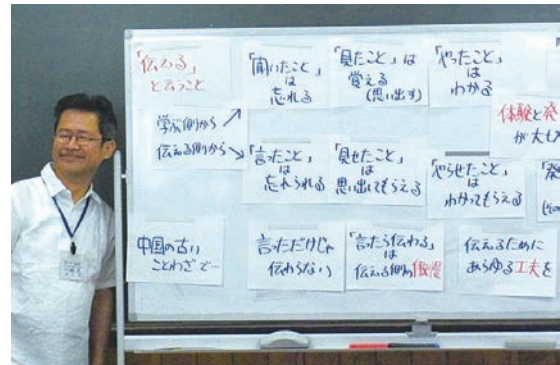 「伝わる」
と云うこと
学ぶ側から
伝える側から
「聞いたこと」
は
忘れる
「見たこと」は
覚える
(思い出す)
「やったこと」
は
わかる
体験と発
が大
「言ったこと」
は
忘れられる
「見せたこと」
は
思い出してもらえる
「やらせたこと」
は
わかってもらえる
中国の古い
ことわざで…
言っただけじゃ
伝わらない
「言ったら伝わる」
は
伝える側の傲慢
伝えるために
あらゆる工夫を